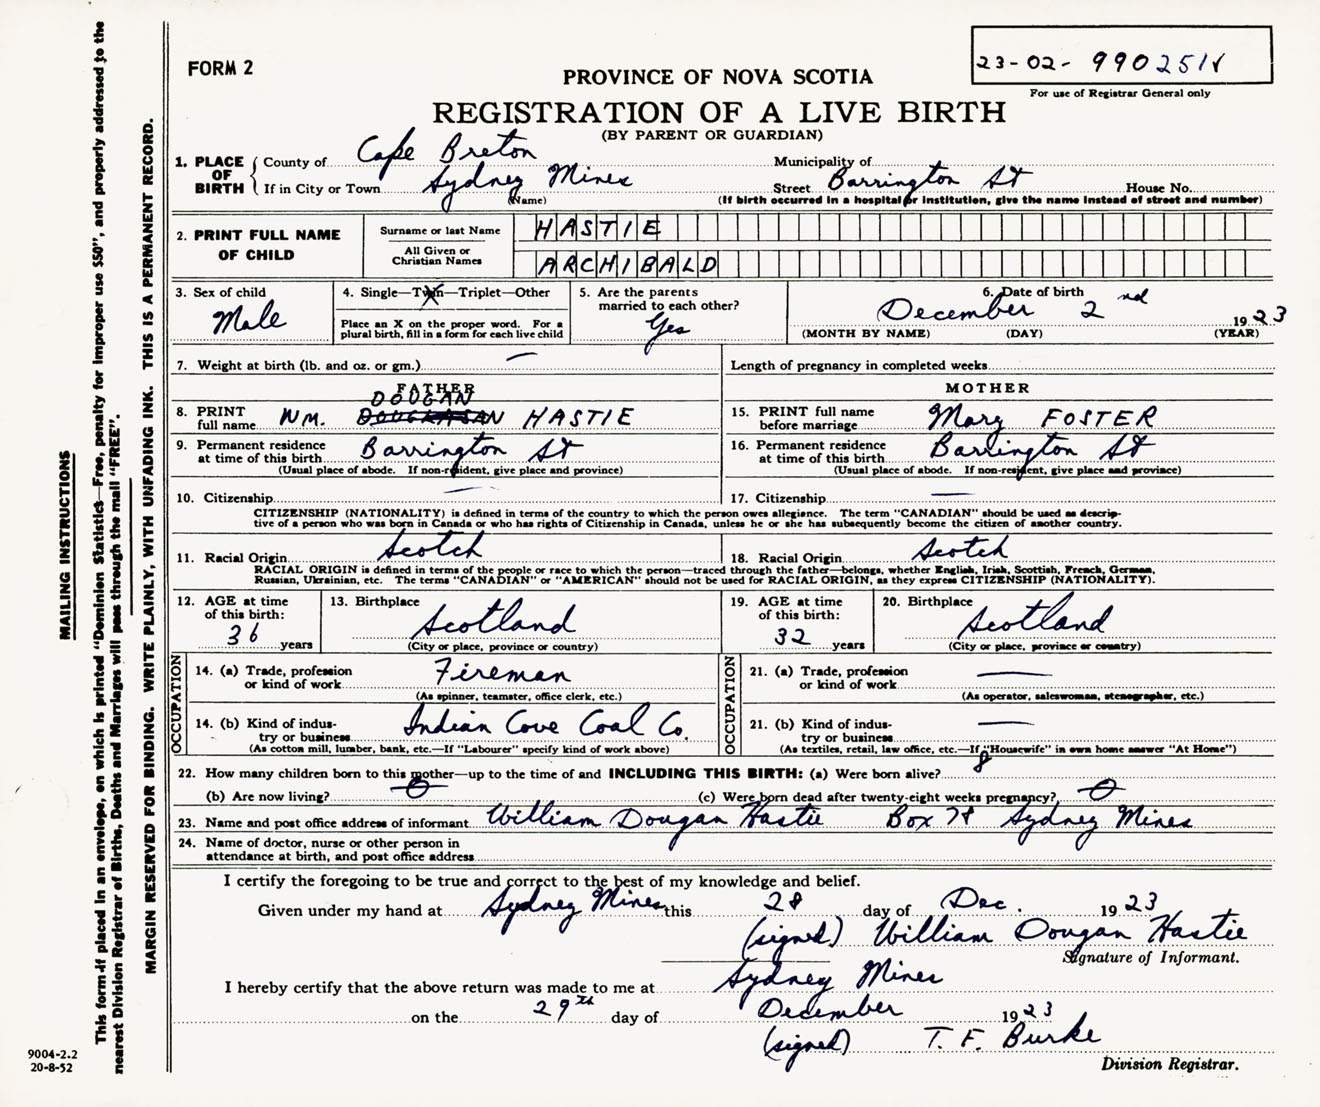 FORM 2
23-02- 990251V
For use of Registrar General only
PROVINCE OF NOVA SCOTIA
REGISTRATION OF A LIVE BIRTH
(BY PARENT OR GUARDIAN)
1. PLACE OF BIRTH { County of Cape Breton Municipality of
If in City or Town Sydney Mines Street Barrington St House No.
(Name) (If birth occurred in a hospital or institution, give the name instead of street and number)
2. PRINT FULL NAME OF CHILD
Surname or last Name HASTIE
All Given or Christian Names ARCHIBALD
3. Sex of child
Male
4. Single—Twin—Triplet—Other
X
Place an X on the proper word. For a
plural birth, fill in a form for each live child
5. Are the parents
married to each other?
Yes
6. Date of birth
December 2nd 1923
(MONTH BY NAME) (DAY) (YEAR)
7. Weight at birth (lb. and oz. or gm.) — Length of pregnancy in completed weeks
FATHER
DOUGAN
8. PRINT full name WM. HASTIE
9. Permanent residence at time of this birth Barrington St
(Usual place of abode. If non-resident, give place and province)
10. Citizenship —
MOTHER
15. PRINT full name before marriage Mary FOSTER
16. Permanent residence at time of this birth Barrington St
(Usual place of abode. If non-resident, give place and province)
17. Citizenship —
CITIZENSHIP (NATIONALITY) is defined in terms of the country to which the person owes allegiance. The term "CANADIAN" should be used as descrip-
tive of a person who was born in Canada or who has rights of Citizenship in Canada, unless he or she has subsequently become the citizen of another country.
11. Racial Origin Scotch 18. Racial Origin Scotch
RACIAL ORIGIN is defined in terms of the people or race to which the person—traced through the father—belongs, whether English, Irish, Scottish, French, German,
Russian, Ukrainian, etc. The terms "CANADIAN" or "AMERICAN" should not be used for RACIAL ORIGIN, as they express CITIZENSHIP (NATIONALITY).
12. AGE at time of this birth:
36 years
13. Birthplace
Scotland
(City or place, province or country)
19. AGE at time of this birth:
32 years
20. Birthplace
Scotland
(City or place, province or country)
OCCUPATION
14. (a) Trade, profession or kind of work Fireman
(As spinner, teamster, office clerk, etc.)
14. (b) Kind of indus-
try or business Indian Cove Coal Co.
(As cotton mill, lumber, bank, etc.—If "Labourer" specify kind of work above)
OCCUPATION
21. (a) Trade, profession or kind of work —
(As operator, saleswoman, stenographer, etc.)
21. (b) Kind of indus-
try or business —
(As textiles, retail, law office, etc.—If "Housewife" in own home answer "At Home")
22. How many children born to this mother—up to the time of and INCLUDING THIS BIRTH: (a) Were born alive? 8
(b) Are now living? 0 (c) Were born dead after twenty-eight weeks pregnancy? 0
23. Name and post office address of informant William Dougan Hastie Box 78 Sydney Mines
24. Name of doctor, nurse or other person in
attendance at birth, and post office address
I certify the foregoing to be true and correct to the best of my knowledge and belief.
Given under my hand at Sydney Mines this 28 day of Dec. 1923
(signed) William Dougan Hastie
Signature of Informant.
I hereby certify that the above return was made to me at Sydney Mines
on the 29th day of December 1923
(signed) T. F. Burke
Division Registrar.
MAILING INSTRUCTIONS
This form if placed in an envelope, on which is printed "Dominion Statistics—Free, penalty for improper use $50", and properly addressed to the
nearest Division Registrar of Births, Deaths and Marriages will pass through the mail "FREE".
MARGIN RESERVED FOR BINDING. WRITE PLAINLY, WITH UNFADING INK. THIS IS A PERMANENT RECORD.
9004-2.2
20-8-52